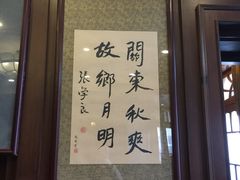 關東秋爽
故鄉月明
張學良